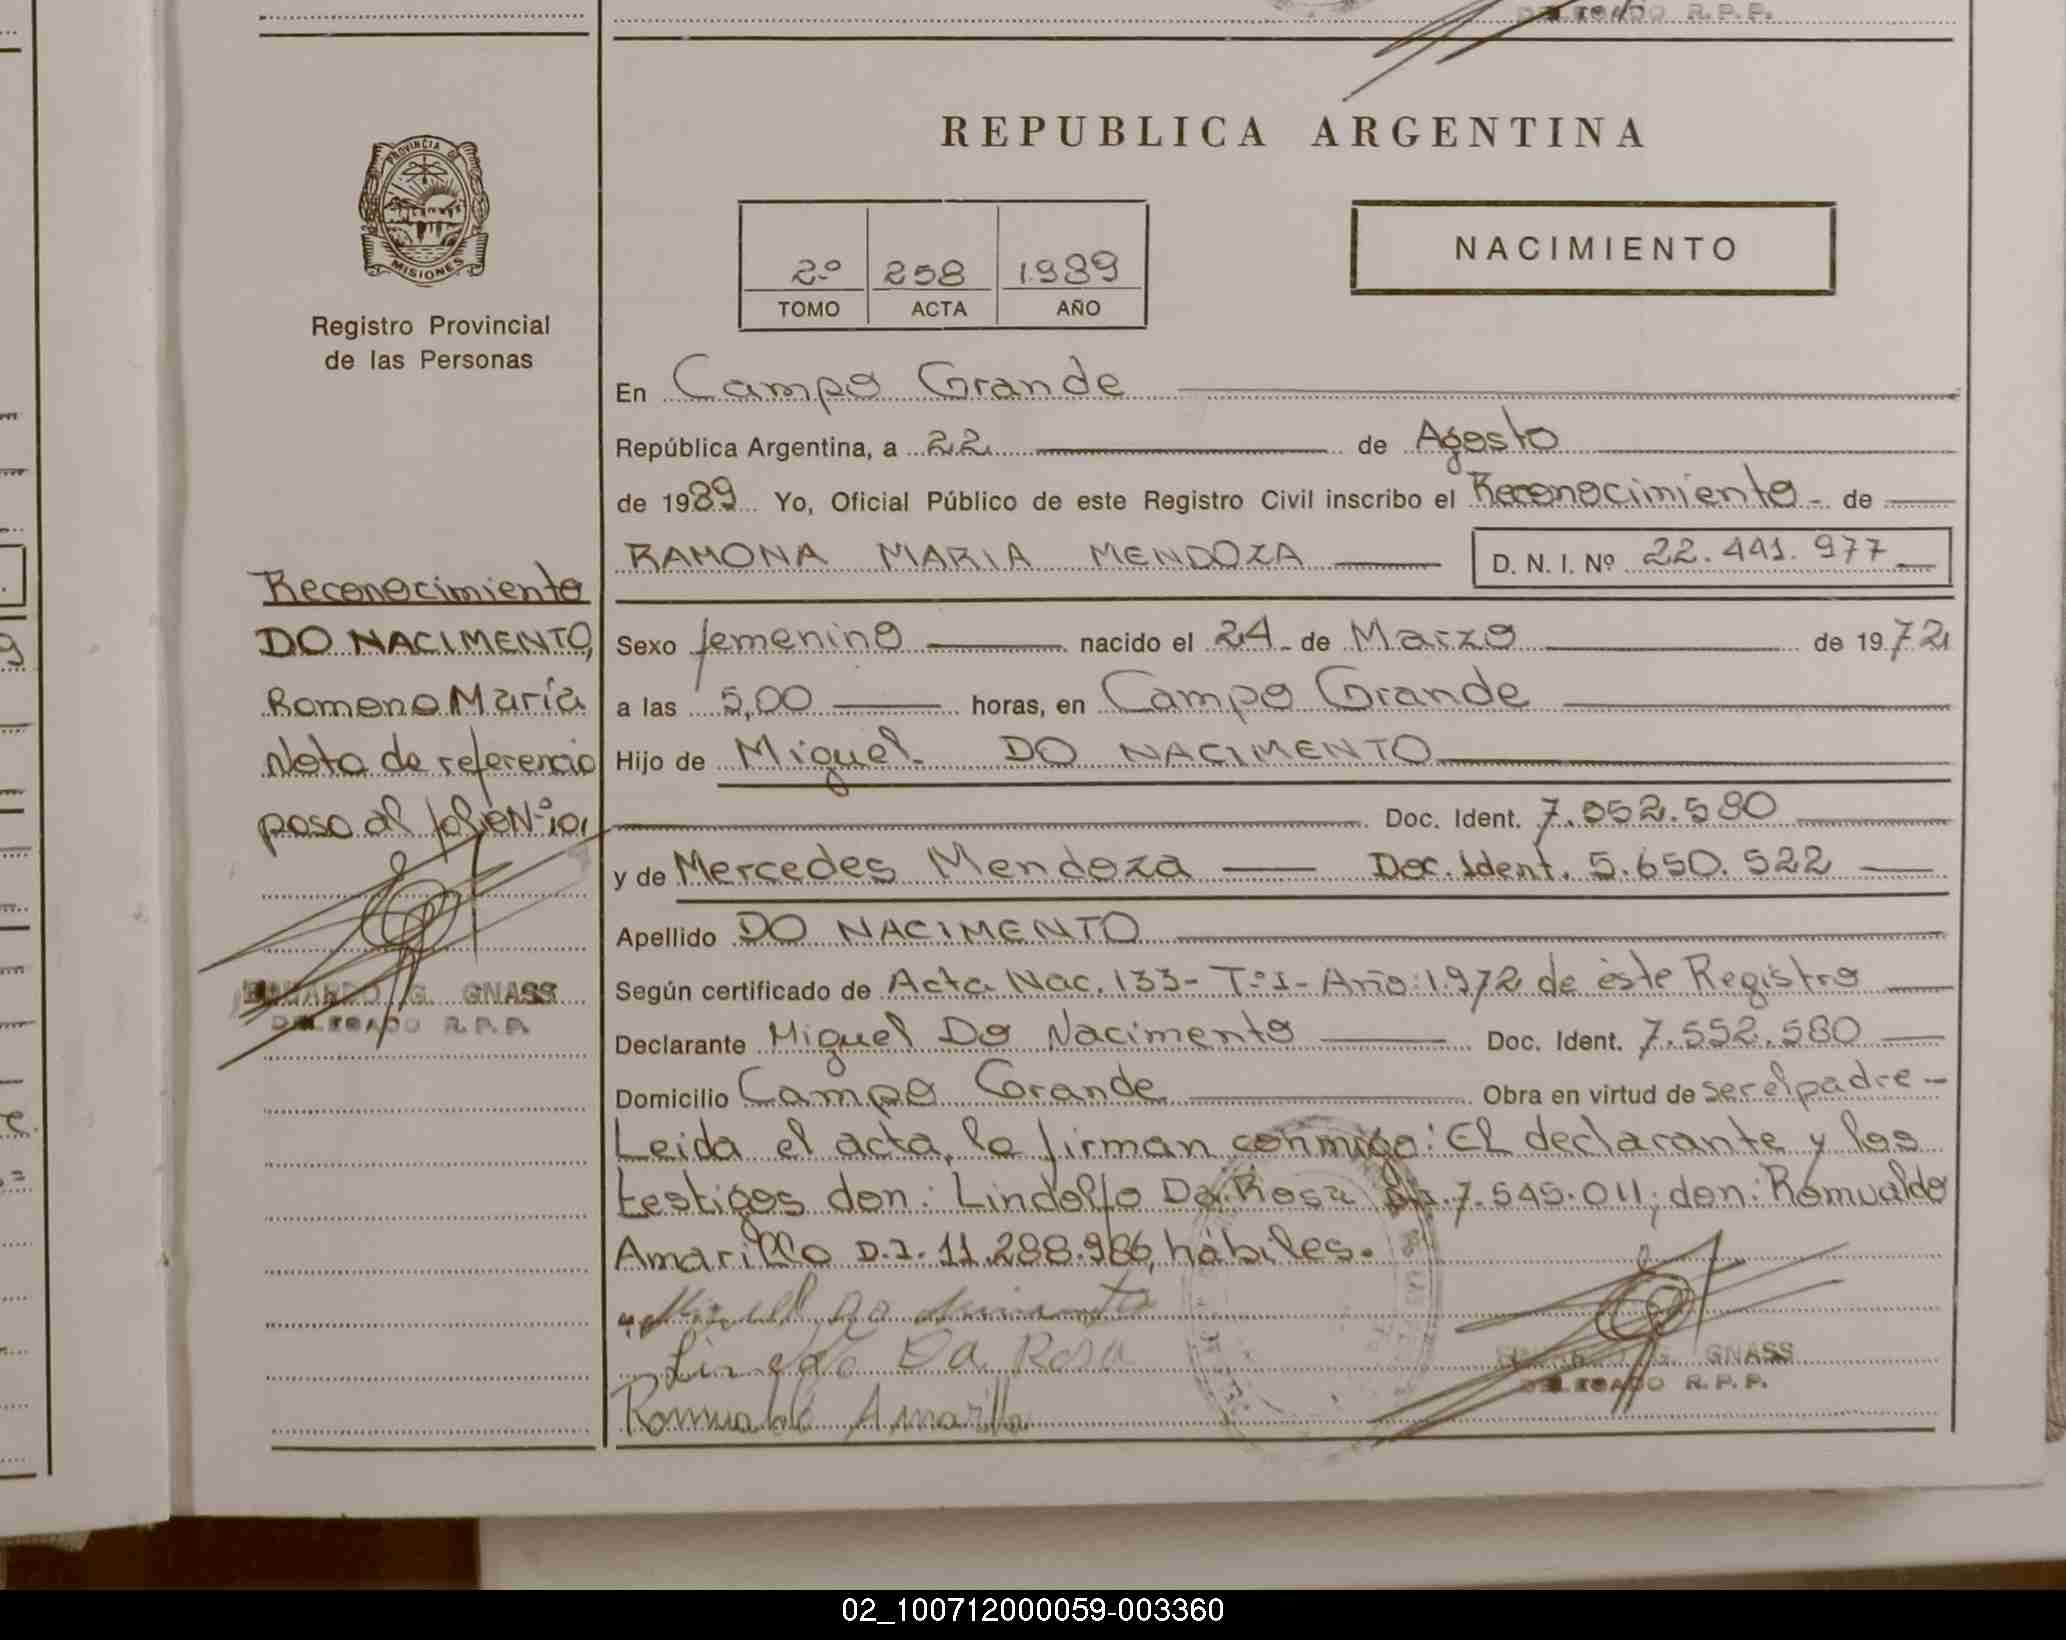 DELEGADO R.P.P.
PROVINCIA DE
MISIONES
Registro Provincial
de las Personas
Reconocimiento
DO NACIMENTO,
Ramona María
Nota de referencia
pasa al folio Nº 101
EDUARDO G. GNASS
DELEGADO R.P.P.
REPUBLICA ARGENTINA
2º 258 1989
TOMO ACTA AÑO
NACIMIENTO
En Campo Grande
República Argentina, a 22 de Agosto
de 1989 Yo, Oficial Público de este Registro Civil inscribo el Reconocimiento - de
RAMONA MARIA MENDOZA D. N. I. Nº 22.441.977
Sexo femenino nacido el 24 - de Marzo de 1972
a las 5,00 horas, en Campo Grande
Hijo de Miguel DO NACIMENTO
Doc. Ident. 7.552.580
y de Mercedes Mendoza Doc. Ident. 5.650.522
Apellido DO NACIMENTO
Según certificado de Acta Nac. 133- Tº1- Año: 1.972 de éste Registro
Declarante Miguel Do Nacimento Doc. Ident. 7.552.580
Domicilio Campo Grande Obra en virtud de ser el padre -
Leida el acta, la firman conmigo: El declarante y los
testigos don: Lindolfo Da Rosa D.I. 7.545.011; don: Romualdo
Amarillo D.I. 11.288.986, hábiles.
Lindolfo Da Rosa
Romualdo Amarilla
EDUARDO G. GNASS
DELEGADO R.P.P.
02_100712000059-003360